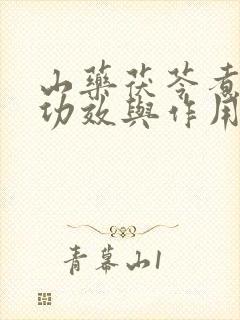 山藥茯苓煮
功效與作用
青幕山1